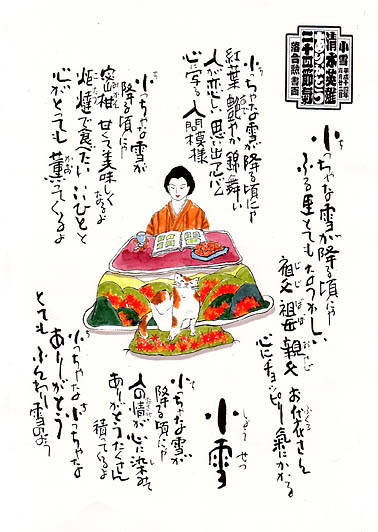 小雪
清水英雄
二十四節氣
落合勲書画
小っちゃな雪が降る頃にゃ
ふる里とてもなつかしい
祖父祖母親父お袋さん
心にチョッピリ氣にかかる
小雪
しょうせつ
小っちゃな雪が降る頃にゃ
紅葉艶やか錦舞い
人が恋しい思い出心
心に写る人間模様
小っちゃな雪が
降る頃にゃ
蜜柑甘くて美味しくなるよ
炬燵で食べたいいひとと
心がとっても薫ってくるよ
小っちゃな雪が
降る頃にゃ
人の情が心に染みて
ありがとうたくさん
積ってるよ
小っちゃな小っちゃな
ありがとう
とてもふんわり雪のよう